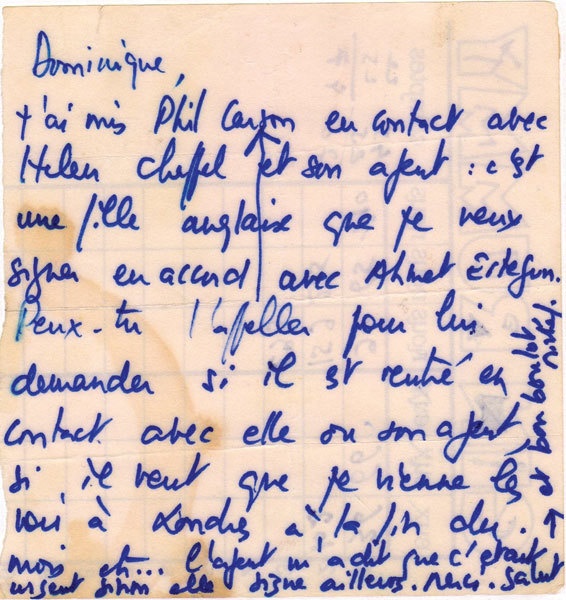 Dominique,
j'ai mis Phil Carson en contact avec
Helen Cheppel et son agent : c'est
une fille anglaise que je veux
signer en accord avec Ahmet Ertegun.
Peux-tu l'appeller pour lui
demander si il est rentré en
contact avec elle ou son agent
si, il veut que je vienne les
voir à Londres à la fin du
mois et... l'agent m'a dit que c'était
urgent sinon elle signe ailleurs. Merci. Salut
et bon boulot